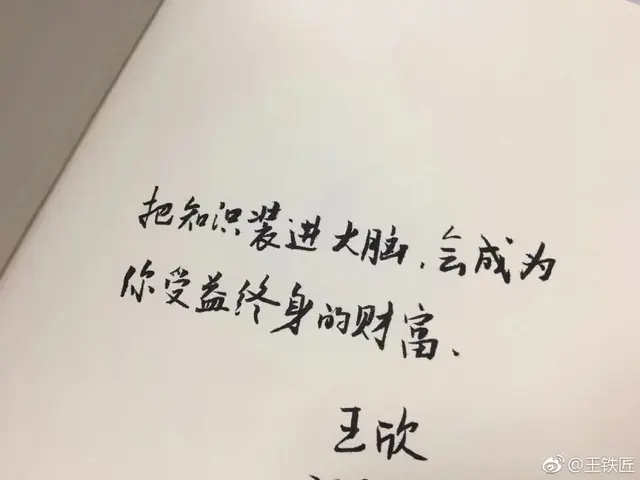 把知识装进大脑，会成为
你受益终身的财富.
王欣
@王铁匠